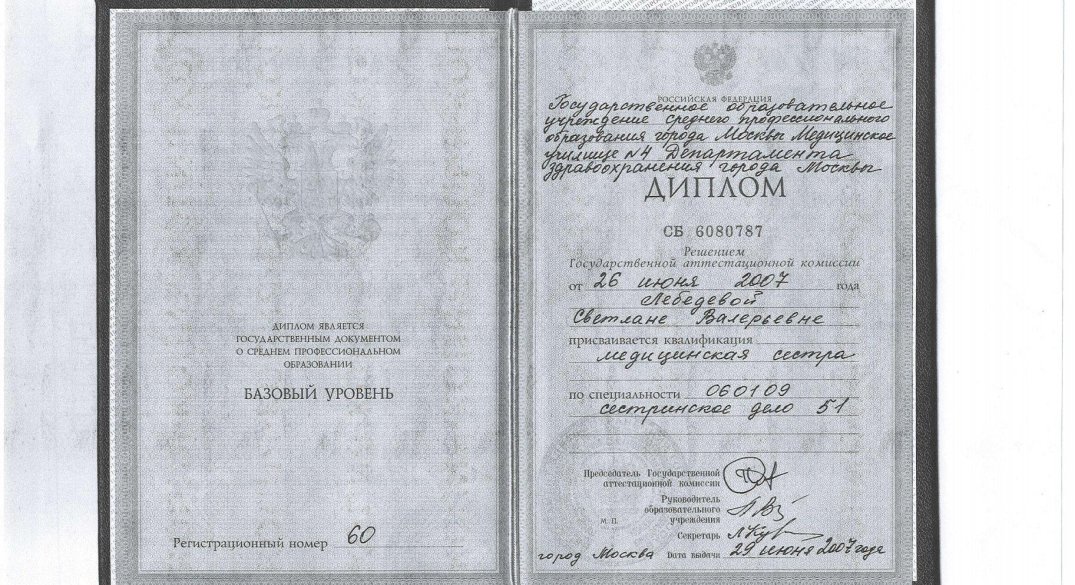 ДИПЛОМ ЯВЛЯЕТСЯ
ГОСУДАРСТВЕННЫМ ДОКУМЕНТОМ
О СРЕДНЕМ ПРОФЕССИОНАЛЬНОМ
ОБРАЗОВАНИИ
БАЗОВЫЙ УРОВЕНЬ
Регистрационный номер 60
РОССИЙСКАЯ ФЕДЕРАЦИЯ
Государственное образовательное
учреждение среднего профессионального
образования города Москвы Медицинское
училище №4 Департамента
здравоохранения города Москвы
ДИПЛОМ
СБ 6080787
Решением
Государственной аттестационной комиссии
от 26 июня 2007 года
Лебедевой
Светлане Валерьевне
присваивается квалификация
медицинская сестра
по специальности 060109
сестринское дело 51
Председатель Государственной
аттестационной комиссии
Руководитель
образовательного
М. П. учреждения
Секретарь
город Москва Дата выдачи 29 июня 2007 года